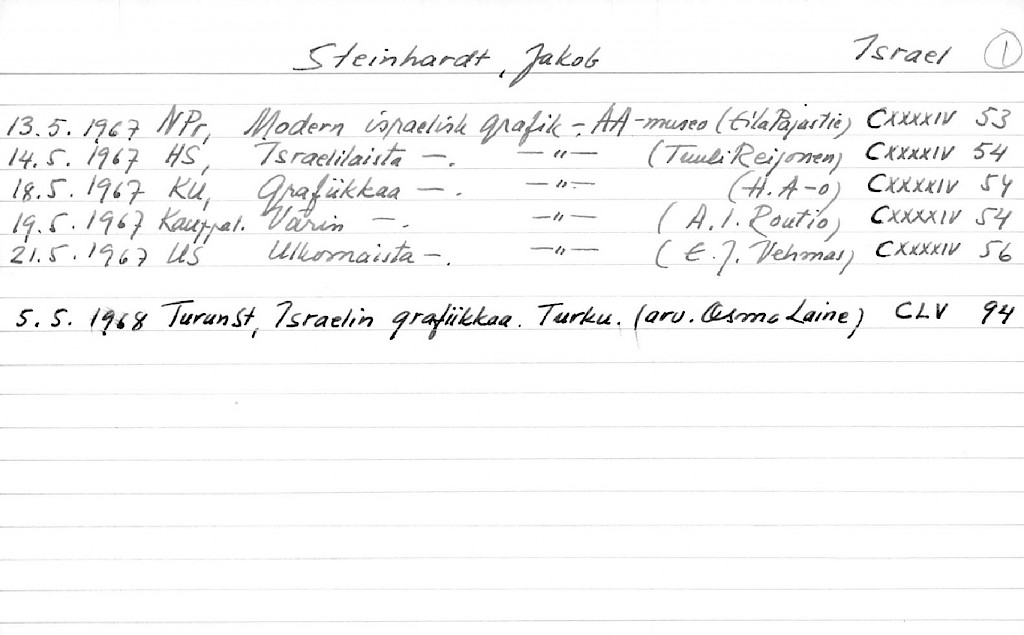 Steinhardt, Jakob Israel 1
13.5.1967 NPr, Modern israelisk grafik -. AA-museo (Eila Pajastie) CXXXXIV 53
14.5.1967 HS, Israelilaista -. -"- (Tuuli Reijonen) CXXXXIV 54
18.5.1967 KU, Grafiikkaa -. -"- (H. A-o) CXXXXIV 54
19.5.1967 Kauppal. Värin -. -"- (A.I. Routio) CXXXXIV 54
21.5.1967 US Ulkomaista -. -"- (E.J. Vehmas) CXXXXIV 56
5.5.1968 TurunSt, Israelin grafiikkaa. Turku. (arv. Osmo Laine) CLV 94